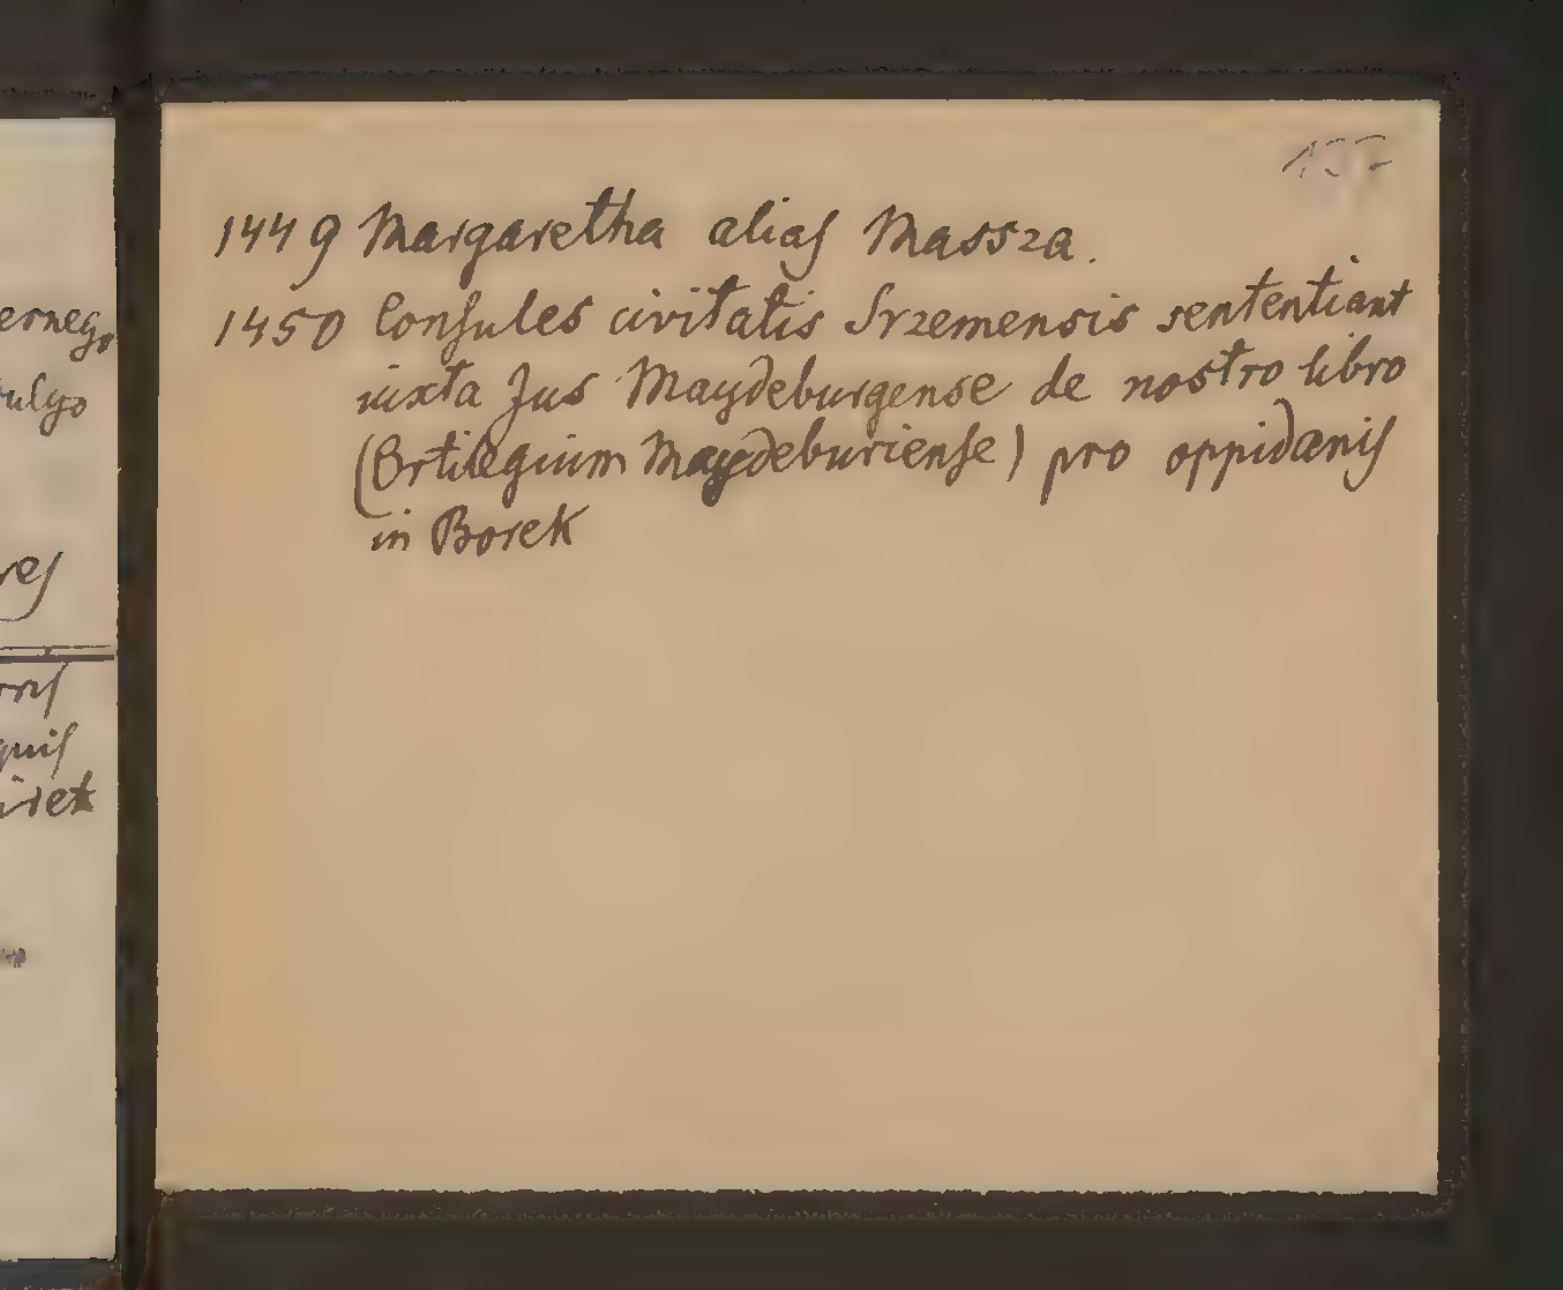 157
1449 Margaretha alias Massza.
1450 Consules civitatis Srzemensis sententiant
iuxta Jus Maydeburgense de nostro libro
(Ortilegium Maydeburiense) pro oppidanis
in Borek
ernego
vulgo
res
quis